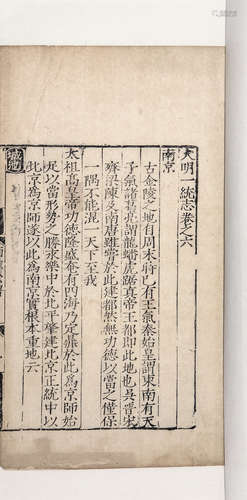 大明一統志卷之六
南京
古金陵之地有周末時已有王氣秦始皇謂東南有天
子氣諸葛亮謂龍蟠虎踞真帝王都即此地也晉宋
齊梁陳及南唐雖嘗於此建都然無功德以當之僅保
一隅不能混一天下至我
太祖高皇帝功德隆盛奄有四海乃定鼎於此為京師始
足以當形勢之勝永樂中於北平肇建北京正統中以
北京為京師遂以此為南京實根本重地云
城池